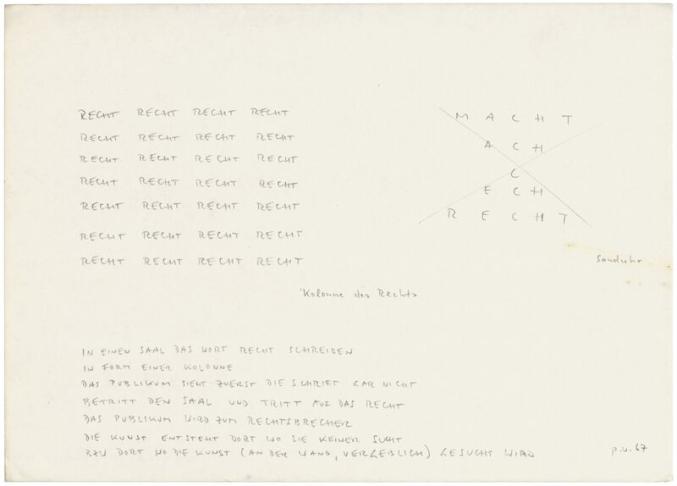 RECHT RECHT RECHT RECHT
RECHT RECHT RECHT RECHT
RECHT RECHT RECHT RECHT
RECHT RECHT RECHT RECHT
RECHT RECHT RECHT RECHT
RECHT RECHT RECHT RECHT
RECHT RECHT RECHT RECHT
M A C H T
A C H
C
E C H
R E C H T
Sanduhr
Kolonne des Rechts
IN EINEN SAAL DAS WORT RECHT SCHREIBEN
IN FORM EINER KOLONNE
DAS PUBLIKUM SIEHT ZUERST DIE SCHRIFT GAR NICHT
BETRITT DEN SAAL UND TRITT AUF DAS RECHT
DAS PUBLIKUM WIRD ZUM RECHTSBRECHER
DIE KUNST ENTSTEHT DORT WO SIE KEINER SUCHT
BZW DORT WO DIE KUNST (AN DER WAND, VERGEBLICH) GESUCHT WIRD
p.w. 67